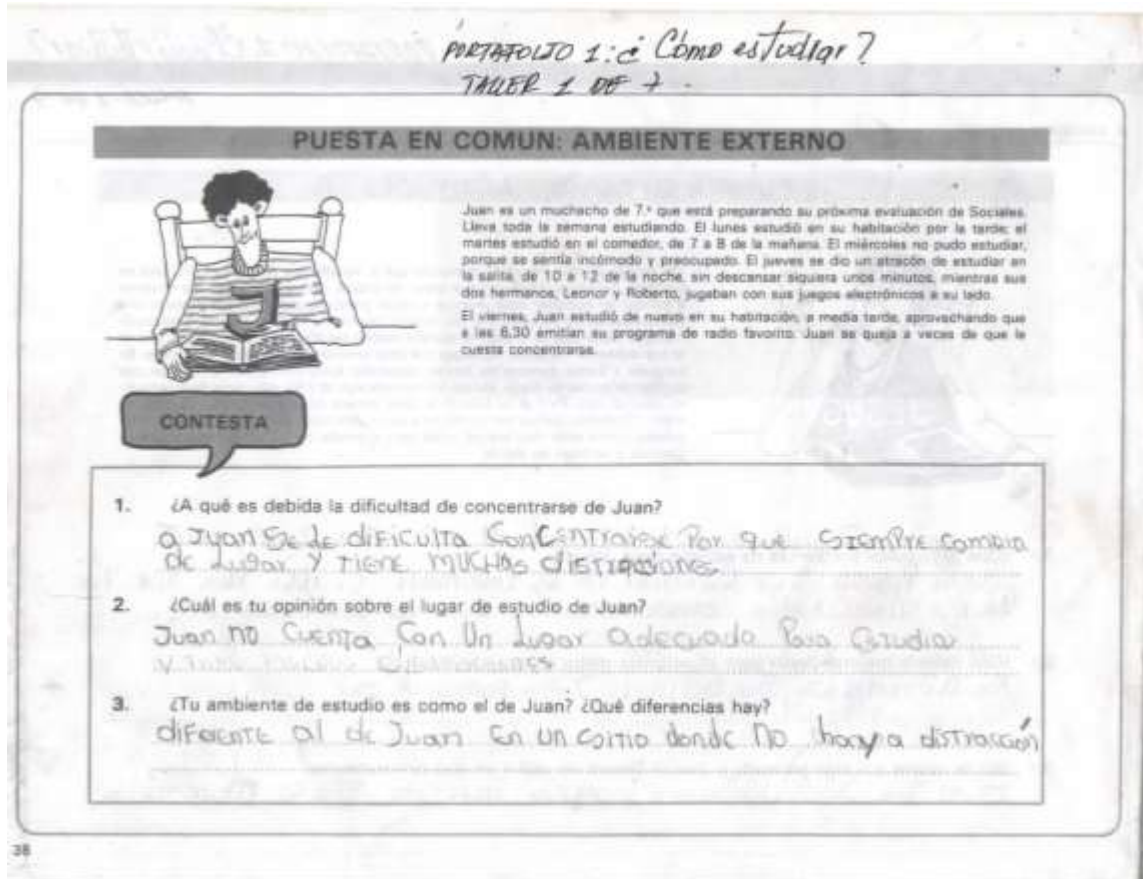 PORTAFOLIO 1: ¿Cómo estudiar?
TALLER 1 DE 7.
PUESTA EN COMUN: AMBIENTE EXTERNO
Juan es un muchacho de 7.º que está preparando su próxima evaluación de Sociales.
Lleva toda la semana estudiando. El lunes estudió en su habitación por la tarde; el
martes estudió en el comedor, de 7 a 8 de la mañana. El miércoles no pudo estudiar,
porque se sentía incómodo y preocupado. El jueves se dio un atracón de estudiar en
la salita, de 10 a 12 de la noche, sin descansar siquiera unos minutos, mientras sus
dos hermanos, Leonor y Roberto, jugaban con sus juegos electrónicos a su lado.
El viernes, Juan estudió de nuevo en su habitación, a media tarde, aprovechando que
a las 6,30 emitían su programa de radio favorito. Juan se queja a veces de que le
cuesta concentrarse.
J
CONTESTA
1. ¿A qué es debida la dificultad de concentrarse de Juan?
a Juan se le dificulta concentrarse por que siempre cambia
de lugar y tiene muchas distracciones
2. ¿Cuál es tu opinión sobre el lugar de estudio de Juan?
Juan no cuenta con un lugar adecuado para estudiar
y
3. ¿Tu ambiente de estudio es como el de Juan? ¿Qué diferencias hay?
diferente al de Juan en un sitio donde no haya distracción
38